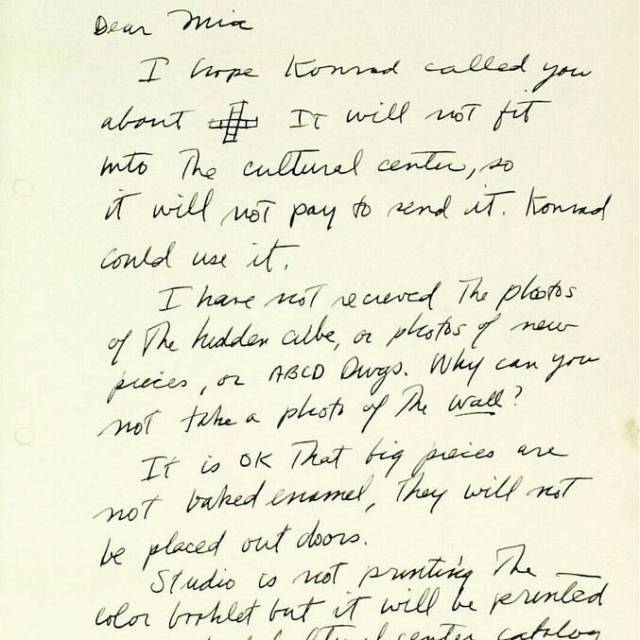 Dear Mia
I hope Konrad called you
about It will not fit
into The cultural center, so
it will not pay to send it. Konrad
could use it.
I have not recieved The photos
of The hidden cube, or photos of new
pieces, or ABCD Dwgs. Why can you
not take a photo of The wall?
It is OK That big pieces are
not baked enamel, They will not
be placed out doors.
Studio is not printing The
color booklet but it will be printed
cultural center catalog